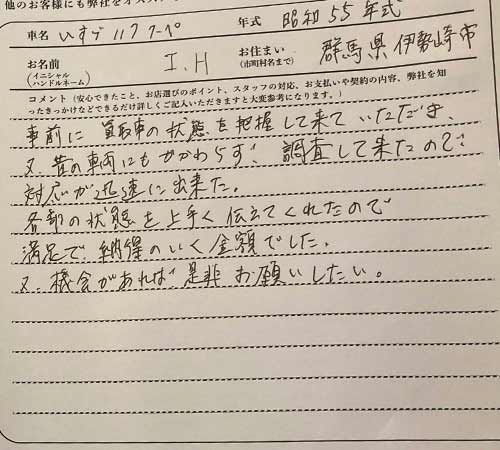 他のお客様にも弊社をオス
車名 いすゞ117クーペ 年式 昭和55年式
お名前 I.H お住まい 群馬県伊勢崎市
(イニシャル (市町村名まで)
ハンドルネーム)
コメント(安心できたこと、お店選びのポイント、スタッフの対応、お支払いや契約の内容、弊社を知
ったきっかけなどできるだけ詳しくご記入いただきますと大変参考になります。)
事前に買取車の状態を把握して来ていただき、
又、昔の車両にもかかわらず、調査して来たので
対応が迅速に出来た。
各部の状態を上手く伝えてくれたので
満足で納得のいく金額でした。
又、機会があれば是非お願いしたい。